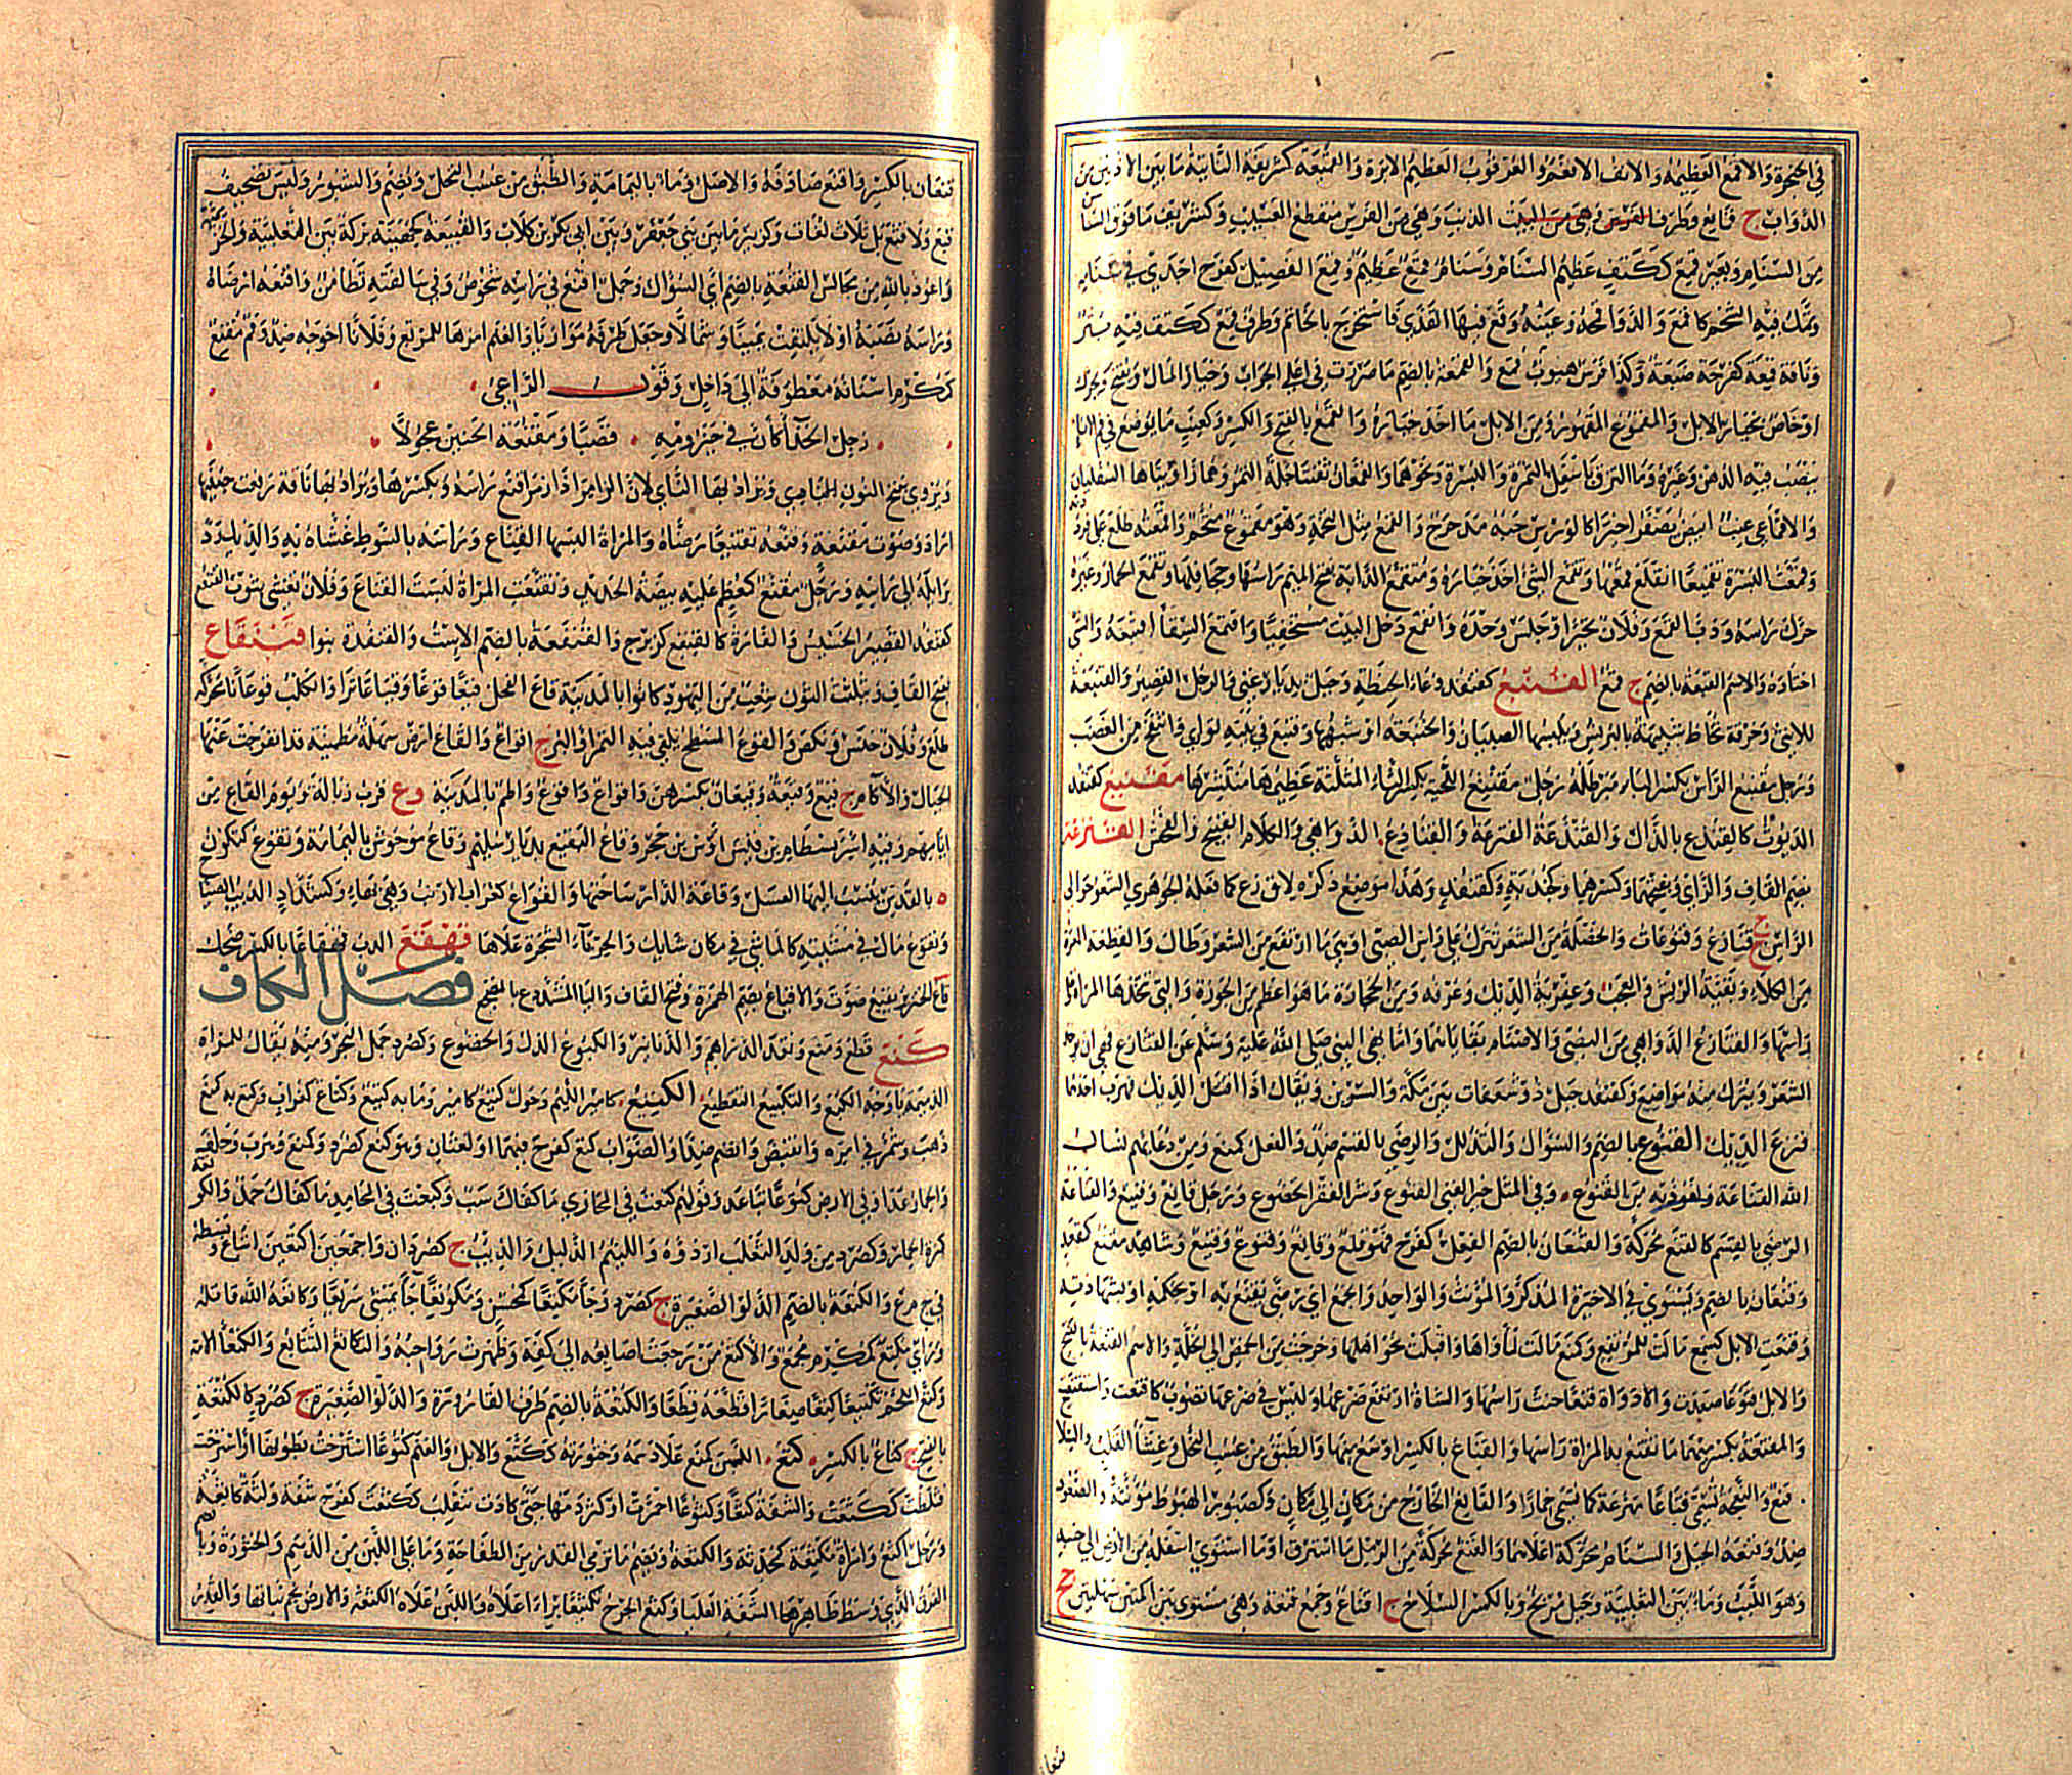 في الحنجرة والاقمع العظيمه والانف الاقمع والعرقوب العظيم الابرة والقمعة كشريفة الناتئة ما بين الاذنين من
الدواب ج قمايع وطرف الذنب وهي من الفرس منقطع العسيب وكشريف ما فوق السناسن
من السنام وبعير قمع ككتف عظيم السنام وسنام قمع عظيم وقمع الفصيل كفرح اجدى في سنامه
وتمك فيه الشحم كاقمع والدواقمحه وعينه وقع فيها القذى فاستخرج بالخاتم وطرف قمع ككتف فيه بثر
وناقة قمعة كفرحة ضبعة وكذا فرس هبوب قمع والقمعة بالضم ما صررت في اعلى الجراب وخيار المال ويفتح ويحرك
او خاص بخيار الابل والمقموع المقهور ومن الابل ما اخذ خياره والقمع بالفتح والكسر وكعنب ما يوضع في فم الاناء
فيصب فيه الدهن وغيره وما التزق باسفل التمرة والبسرة ونحوهما والقمعان ثفنتا جلة التمر وهما زاويتاها السفليان
والاقماعي عنب ابيض يصفر اخيرا كالورس حبه مدحرج والقمع مثل التخمة وهو مقموع متخم واقمعته طلع علي فرددته
وقمعت البسرة تقميعا انقلع قمعها وتقمع الشئ اخذ خياره ومتقمع الدابة بفتح الميم راسها وجحافلها وتقمع الحمار وغيره
حرك راسه وذبا القمع وفلان تحير او جلس وحده وانقمع دخل البيت مستخفيا واقتمع السقا اقتبعه والشئ
اختاره والاسم القمعة بالضم ج قمع القنبع كقنفذ وعاء الحنطة وجبل بديار غني والرجل القصير والقنبعة
للانثى وخرقة تخاط شبيهة بالبرنس ويلبسها الصبيان والخنبعة او شبهها وقنبع في بيته توارى وانتفخ من الغضب
ورجل مقنبع الراس بكسر الباء مبرطله رجل مقنثع اللحية بكسر الثاء المثلثة عظيمها منتشرها مقنثع كقنفذ
الديوث كالقندع بالذال والقندعة القنزعة والقناذع الدواهي والكلام القبيح والفحش القنزعة
بضم القاف والزاي وفتحهما وكسرهما وكجندبة وكقنفذ وهذا موضع ذكره لا ق زع كما فعله الجوهري الشعر حوالى
الراس ج قنازع وقنزعات والخصلة من الشعر تترك على راس الصبي او هي ما ارتفع من الشعر وطال والقطعة المعرة
من الكلاء وبقية الريش والعجب وعفرية الديك وعرفه ومن الحجارة ما هو اعظم من الجوزة والتي تتخذها المراة على
راسها والقنازع الدواهي ومن النصي والاسنام بقاياهما وانما نهى النبي صلى الله عليه وسلم عن القنازع فهي ان يؤخذ
الشعر ويترك منه مواضع وكقنفذ جبل ذو شعفات بين مكة والسرين ويقال اذا اقتتل الديكان فهرب احدهما
قنزع الديك القنوع بالضم والسؤال والتذلل والرضى بالقسم ضد والفعل كمنع ومن دعائهم نسال
الله القناعة ونعوذ به من القنوع وفي المثل خير الغنى القنوع وشر الفقر الخضوع ورجل قانع وقنيع والقناعة
الرضى بالقسم كالقنع محركة والقنعان بالضم الفعل كفرح فهو قنع وقانع وقنوع وقنيع وشاهد مقنع كمقعد
وقنعان بالضم ويستوي في الاخيرة المذكر والمؤنث والواحد والجمع اي رضى يقنع به او بحكمه او بشهادته
وقنعت الابل كسمع مالت للمرتع وكمنع مالت لمأواها واقبلت نحو اهلها وخرجت من الحمض الى الخلة والاسم القنعة بالفتح
والابل قنوعا صعدت والاداوة قنعا خنث راسها والشاة ارتفع ضرعها وليس في ضرعها تصوب كاقنعت واستقنعت
والمقنعة بكسر ميمهما ما تقنع به المراة راسها والقناع بالكسر اوسع منها والطبق من عسب النخل وغشاء القلب والسلاح
قنع والنعجة تسمى قناعا بنزعة كما تسمى خمارا والقانع الخارج من مكان الى مكان وكصبور الهبوط مؤنثة والصعود
ضد وقنعة الجبل والسنام محركة اعلاهما والقنع محركة من الرمل ما اشرف او ما استوى اسفله من الارض الى جنبه
وهو اللبب وماء بين الثعلبية وجبل مربخ وبالكسر السلاح ج اقناع وجمع قنعة وهي مستوى بين اكمتين سهلتين ج
قنعان بالكسر واقنع صادفه والاصل وماء باليمامة والطبق من عسب النخل ويضم والشبور وليس بتصحيف
قبع ولا قثع بل ثلاث لغات وكزبير ماء بين بني جعفر وبين ابي بكر بن كلاب والقنيعة كجهينة بركة بين الثعلبية والخزيمية
واعوذ بالله من مجالس القنعة بالضم اي السؤال وجبل اقنع في راسه شخوص وفي سالفته تطامن واقنعه ارضاه
وراسه نصبه او لا يلتفت يمينا وشمالا وجعل طرفه موازيا والغنم امرها للمرتع وفلانا احوجه ضد وفم مقنع
كمكرم اسنانه معطوفة الى داخل وقول الراعى
زجل الحداء كان في حيزومه قصبا ومقنعة الحنين عجولا
ويروى بفتح النون ويراد بها الناي لان الزامر اذا زمر اقنع راسه وبكسرها ويراد بها ناقة رفعت حنينها
اراد وصوت مقنعة وقنعه تقنيعا رضاه والمراة البسها القناع وراسه بالسوط غشاه به والديك رد
برائله الى راسه ورجل مقنع كمعظم عليه بيضة الحديد وتقنعت المراة لبست القناع وفلان تغشى بثوب القنفع
كقنفذ القصير الخسيس والفارة كالقنفع كزبرج والقنفعة بالضم الاست والقنفذة بنوا قينقاع
بفتح القاف وتثليث النون شعب من اليهود كانوا بالمدينة قاع الفحل قيعا قوعا وقياعا نزا والكلب قوعانا محركة
ظلع وفلان خنس ونكص والقوع المسطح يلقى فيه التمر او البر ج اقواع والقاع ارض سهلة مطمئنة قد انفرجت عنها
الجبال والآكام ج قيع وقيعة وقيعان بكسرهن واقواع واقوع واطم بالمدينة وع قرب زبالة ويوم القاع من
ايامهم وفيه اسر بسطام بن قيس اوس بن حجر وقاع البقيع بديار سليم وقاع موحوش باليمامة وتقوع كتكون
ه بالقدس ينسب اليها العسل وقاعة الدار ساحتها والقواع كغراب الارنب وهي بهاء وكشداد الذئب الصياح
وتقوع مال في مشيته كالماشي في مكان شائك والحرباء الشجرة علاها قهقع الدب قهقاعا بالكسر ضحك
قاع الخنزير يقيع صوت والاقياع بضم الهمزة وفتح القاف والياء المشددة ع بالمضجع فصل الكاف
كبع قطع ومنع ونقد الدراهم والدنانير والكبوع الذل والخضوع وكصرد جمل البحر ومنه يقال للمراة
الدميمة يا وجه الكبع والتكبيع التقطيع الكتيع كامير اللئيم وحول كتيع كامير وما به كتيع وكتاع كغراب وكتع به كمنع
ذهب وشمر في امره وانقبض وانضم ضد والصواب كتع كفرح فيهما او لغتان وهو كتع كصرد وكتع وهرب وحلف
والحمار عدا وفي الارض كتوعا تباعد وقولهم كتعت في المخازي ما كفاك سب وكتعت في المحامد ما كفاك حمد والكتعة
كمرة الحمار وكصرد من ولد الثعلب اردؤه واللئيم الذليل والذئب ج كصردان واجمعين اكتعين اتباع وبسط
في ج م ع والكتعة بالضم الدلو الصغيرة ج كصرد وجاء مكتعا كمحسن ومكوتعا جاء يمشي سريعا وكاتعه الله قاتله
وراي مكتع كمكرم مجمع والاكتع من رجعت اصابعه الى كفه وظهرت رواجبه والتكاتع التتابع والكتعاء الامة
وكتع اللحم تكتيعا كتعا صغارا قطعه قطعا والكتعة بالضم طرف القارورة والدلو الصغيرة ج كصرد كالكتعة
بالفتح ج كتاع بالكسر كثع اللبن كمنع علا دسمه وخثورته ككثع والابل والغنم كثوعا استرخت بطونها او استرخت
فثلطت ككثعت والشفة كثعا وكثوعا احمرت او كثر دمها حتى كادت تنقلب ككثعت كفرح شفة ولثة كاثعة
ورجل اكثع وامراة مكثعة كمحدثة والكثعة ويضم ما ترمي القدر من الطفاحة وما على اللبن من الدسم والخثورة وبالضم
الفرق الذي وسط ظاهر هذا الشفة العليا وكثع الجرح تكثيعا براء اعلاه واللبن علاه الكثعة والارض نجم نباتها والقدر